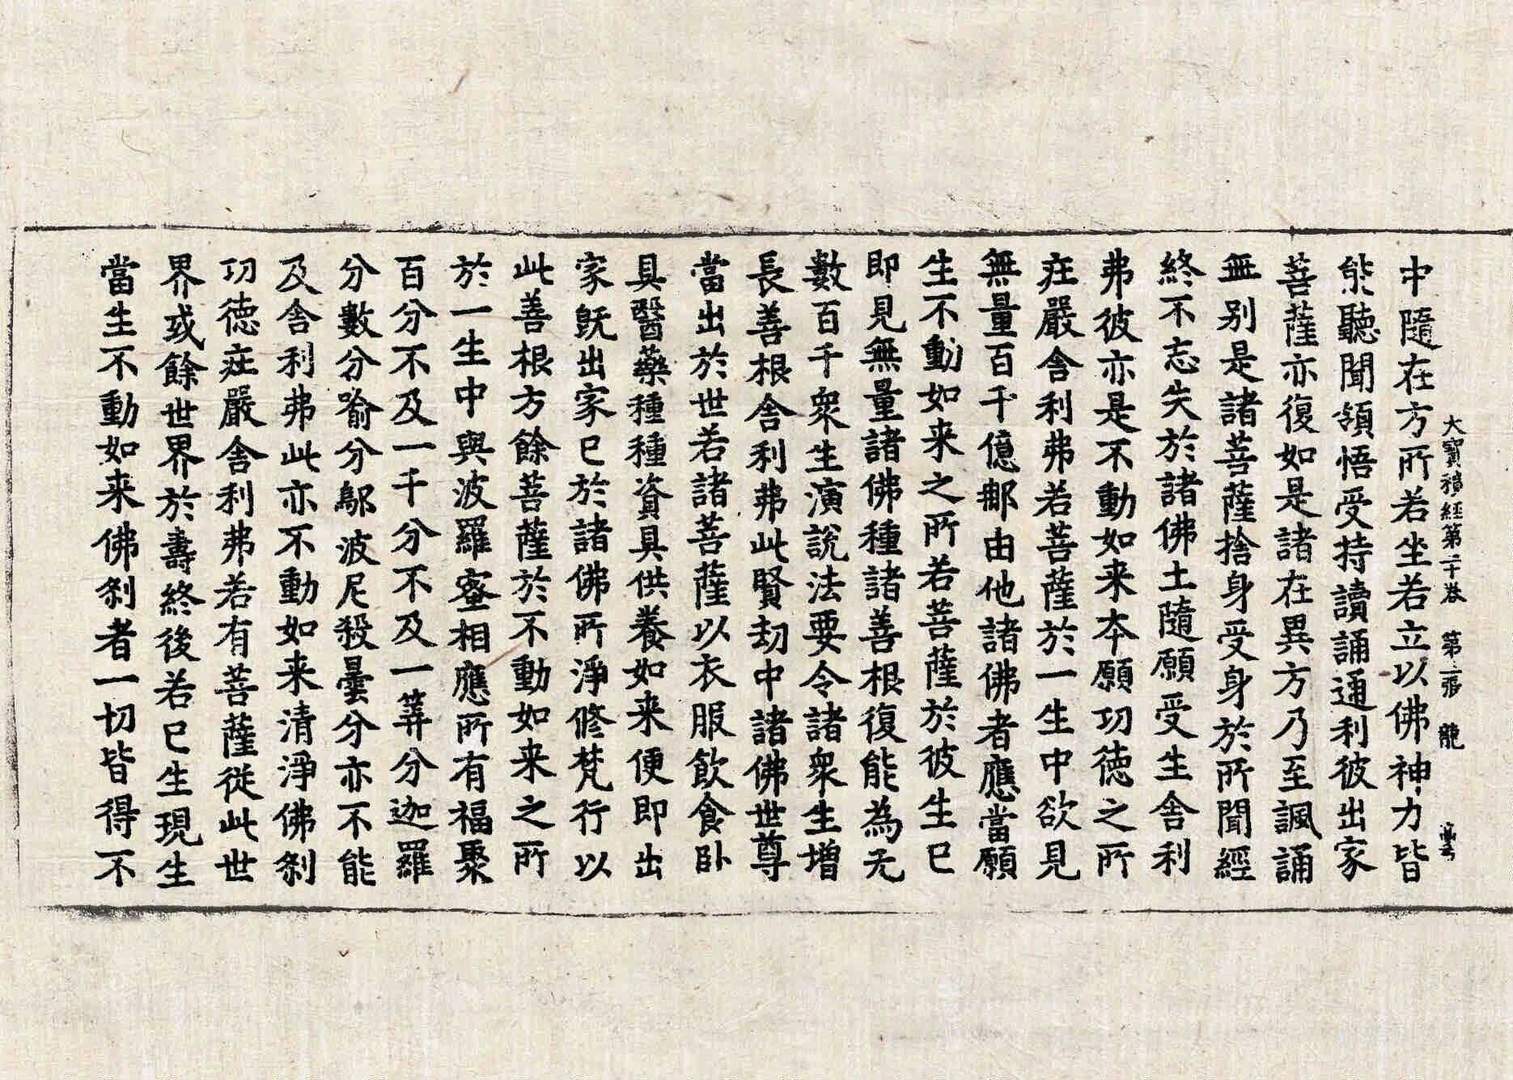 大寶積經第二十卷　第二張　龍
中隨在方所若坐若立以佛神力皆
能聽聞領悟受持讀誦通利彼出家
菩薩亦復如是諸在異方乃至諷誦
無别是諸菩薩捨身受身於所聞經
終不忘失於諸佛土隨願受生舍利
弗彼亦是不動如来夲願㓛徳之所
疘嚴舍利弗若菩薩於一生中欲見
無量百千億𨚗由他諸佛者應當願
生不動如来之所若菩薩於彼生已
即見無量諸佛種諸善根復能為无
數百千衆生演説法要令諸衆生增
長善根舍利弗此賢刧中諸佛世尊
當出於世若諸菩薩以衣服飲食卧
具醫藥種種資具供養如来便即出
家旣出家已於諸佛所淨修梵行以
此善根方餘菩薩於不動如来之所
於一生中與波羅蜜相應所有福聚
百分不及一千分不及一筭分迦羅
分數分喻分鄔波尼殺曇分亦不能
及舍利弗此亦不動如来清淨佛刹
㓛徳疘嚴舍利弗若有菩薩從此世
界或餘世界於壽終後若已生現生
當生不動如来佛刹者一切皆得不